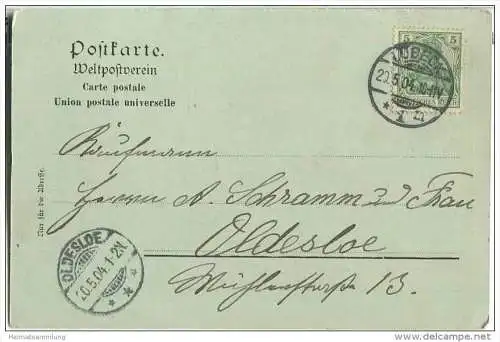 Postkarte.
Weltpostverein
Carte postale
Union postale universelle
5 5
LÜBECK
20.5.04. 10-11V.
* 1 *
Nur für die Adresse.
Kaufmann
Herrn A. Schramm und Frau
Oldesloe
Mühlenstraße 13.
OLDESLOE
20.5.04. 1-2N.
Heimatsammlung
delcampe.net